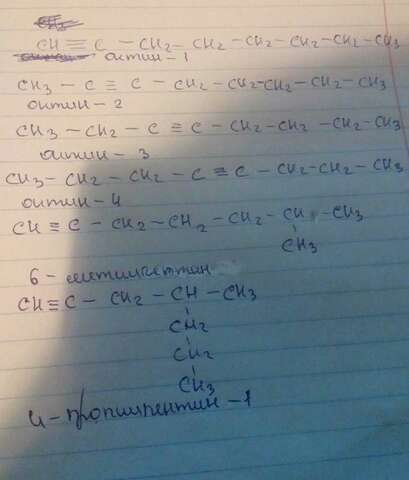 CH ≡ C - CH2 - CH2 - CH2 - CH2 - CH2 - CH3
октин - 1
CH3 - C ≡ C - CH2 - CH2 - CH2 - CH2 - CH3
октин - 2
CH3 - CH2 - C ≡ C - CH2 - CH2 - CH2 - CH3
октин - 3
CH3 - CH2 - CH2 - C ≡ C - CH2 - CH2 - CH3
октин - 4
CH ≡ C - CH2 - CH2 - CH2 - CH - CH3
CH3
6 - метилгептин
CH ≡ C - CH2 - CH - CH3
CH2
CH2
CH3
4 - пропилпентин - 1